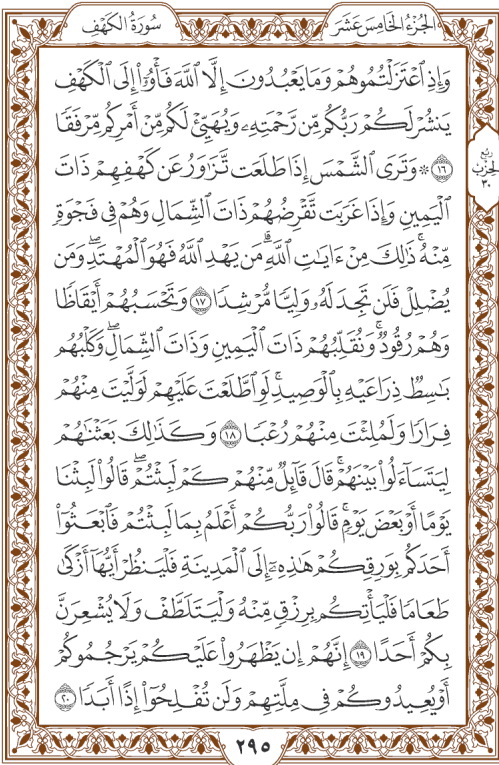 سُورَةُ الكَهْفِ
الجُزْءُ الخَامِسَ عَشَرَ
وَإِذِ ٱعْتَزَلْتُمُوهُمْ وَمَا يَعْبُدُونَ إِلَّا ٱللَّهَ فَأْوُۥٓاْ إِلَى ٱلْكَهْفِ
يَنشُرْ لَكُمْ رَبُّكُم مِّن رَّحْمَتِهِۦ وَيُهَيِّئْ لَكُم مِّنْ أَمْرِكُم مِّرْفَقًا
١٦ ۞ وَتَرَى ٱلشَّمْسَ إِذَا طَلَعَت تَّزَٰوَرُ عَن كَهْفِهِمْ ذَاتَ
ٱلْيَمِينِ وَإِذَا غَرَبَت تَّقْرِضُهُمْ ذَاتَ ٱلشِّمَالِ وَهُمْ فِى فَجْوَةٍ
مِّنْهُ ۚ ذَٰلِكَ مِنْ ءَايَٰتِ ٱللَّهِ ۗ مَن يَهْدِ ٱللَّهُ فَهُوَ ٱلْمُهْتَدِ ۖ وَمَن
يُضْلِلْ فَلَن تَجِدَ لَهُۥ وَلِيًّا مُّرْشِدًا ١٧ وَتَحْسَبُهُمْ أَيْقَاظًا
وَهُمْ رُقُودٌ ۚ وَنُقَلِّبُهُمْ ذَاتَ ٱلْيَمِينِ وَذَاتَ ٱلشِّمَالِ ۖ وَكَلْبُهُم
بَٰسِطٌ ذِرَاعَيْهِ بِٱلْوَصِيدِ ۚ لَوِ ٱطَّلَعْتَ عَلَيْهِمْ لَوَلَّيْتَ مِنْهُمْ
فِرَارًا وَلَمُلِئْتَ مِنْهُمْ رُعْبًا ١٨ وَكَذَٰلِكَ بَعَثْنَٰهُمْ
لِيَتَسَآءَلُواْ بَيْنَهُمْ ۚ قَالَ قَآئِلٌ مِّنْهُمْ كَمْ لَبِثْتُمْ ۖ قَالُواْ لَبِثْنَا
يَوْمًا أَوْ بَعْضَ يَوْمٍ ۚ قَالُواْ رَبُّكُمْ أَعْلَمُ بِمَا لَبِثْتُمْ فَٱبْعَثُوٓاْ
أَحَدَكُم بِوَرِقِكُمْ هَٰذِهِۦٓ إِلَى ٱلْمَدِينَةِ فَلْيَنظُرْ أَيُّهَآ أَزْكَىٰ
طَعَامًا فَلْيَأْتِكُم بِرِزْقٍ مِّنْهُ وَلْيَتَلَطَّفْ وَلَا يُشْعِرَنَّ
بِكُمْ أَحَدًا ١٩ إِنَّهُمْ إِن يَظْهَرُواْ عَلَيْكُمْ يَرْجُمُوكُمْ
أَوْ يُعِيدُوكُمْ فِى مِلَّتِهِمْ وَلَن تُفْلِحُوٓاْ إِذًا أَبَدًا ٢٠
رُبع
الحِزْب
٣٠
٢٩٥